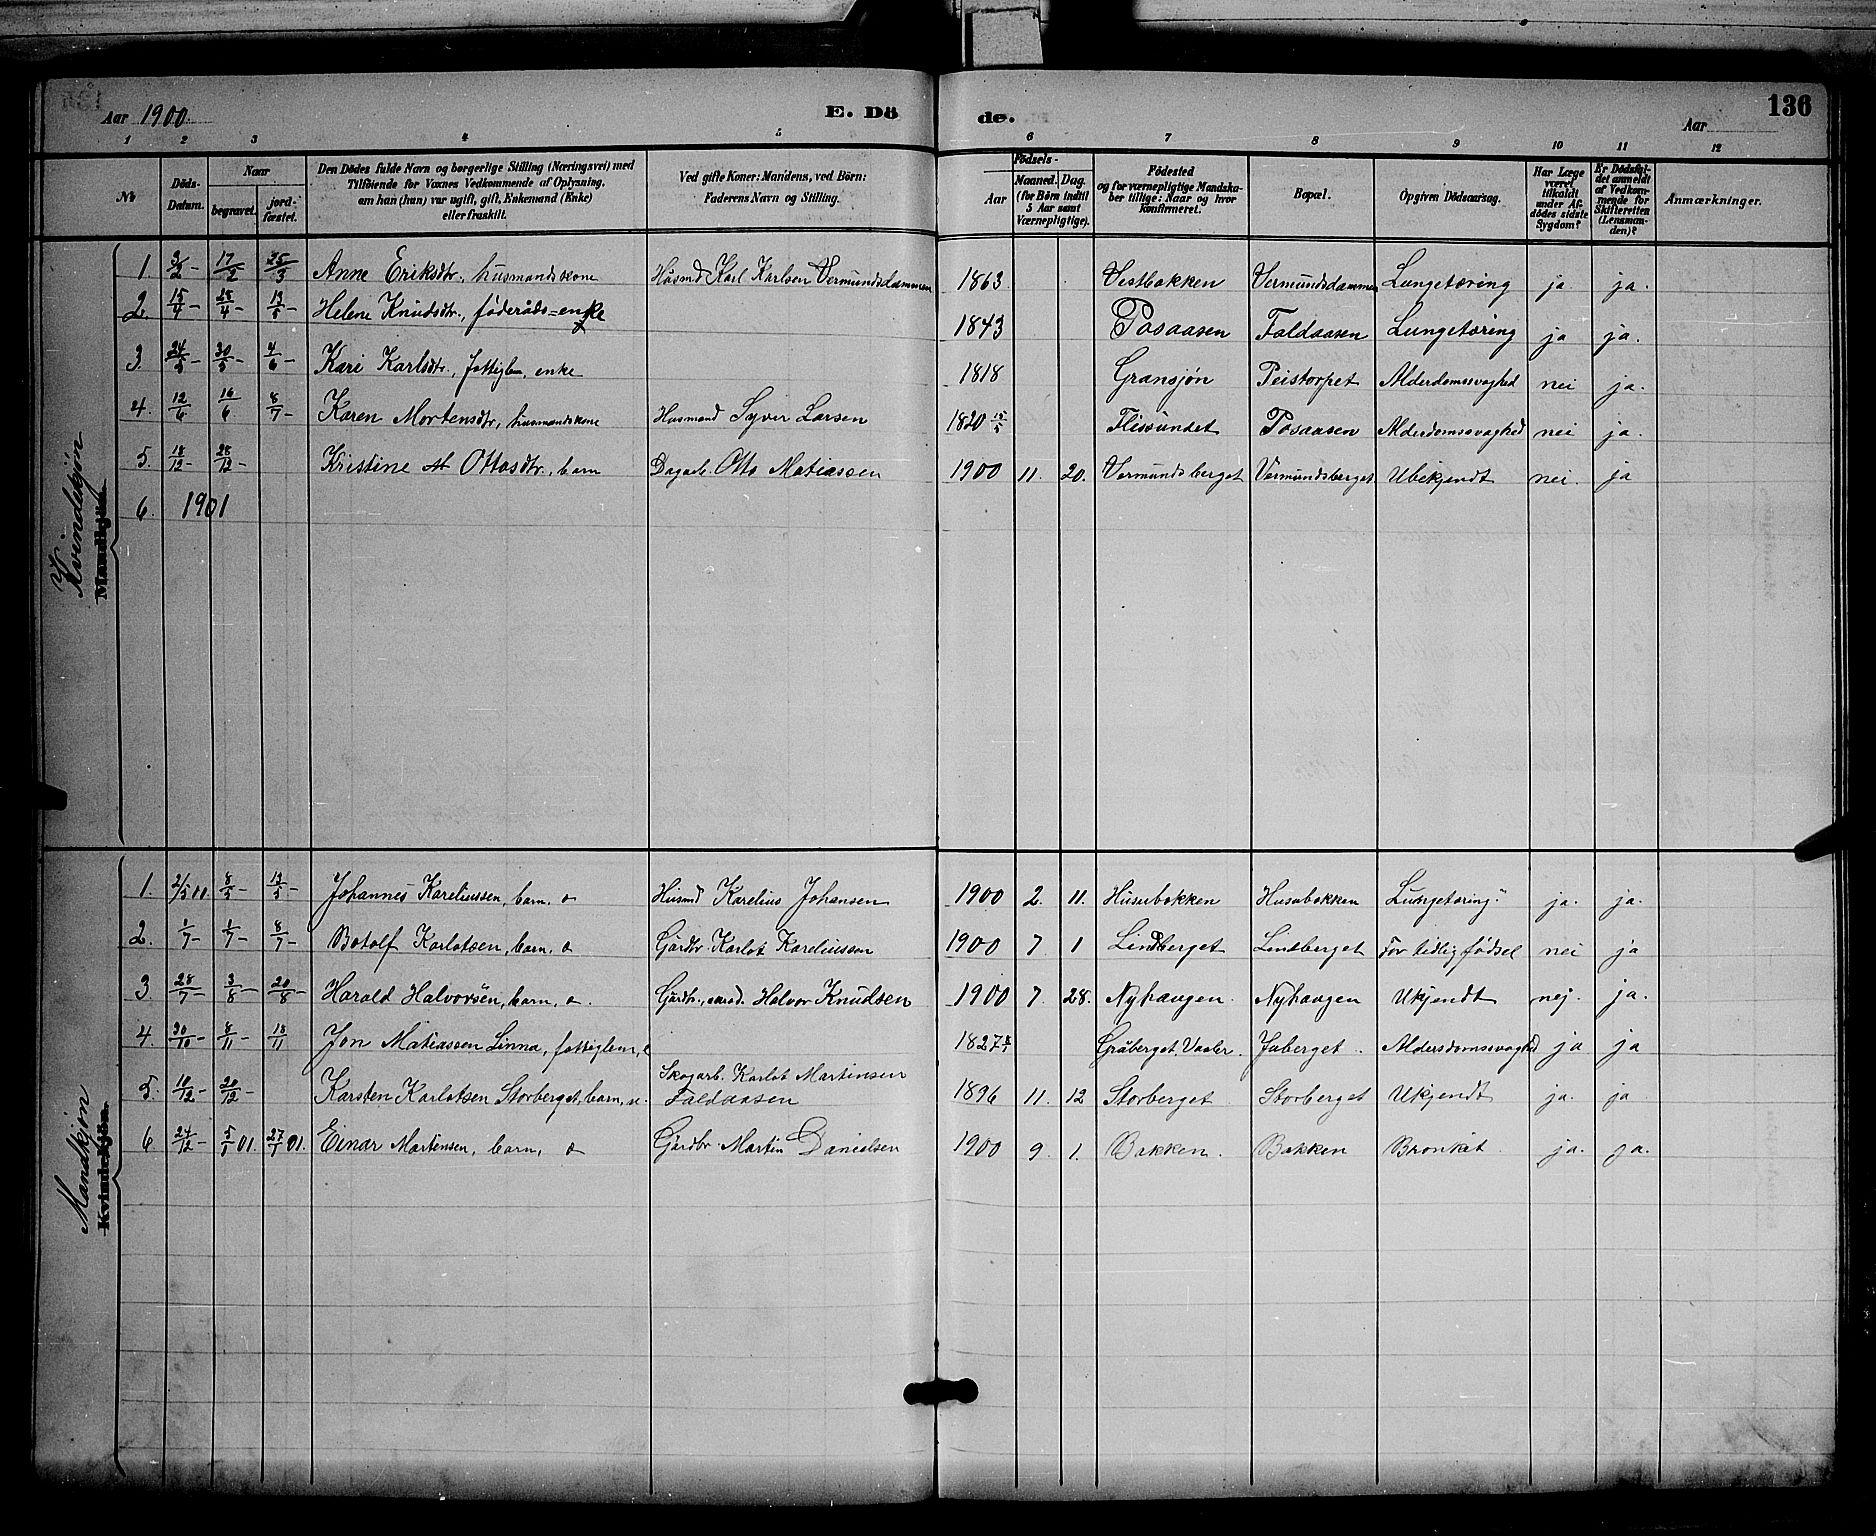 Aar 1900. E. Dö de. Aar 136
1 2 3 4 5 6 7 8 9 10 11 12
№ Döds-Datum. Naar begravet. jord-fæstet. Den Dödes fulde Navn og borgerlige Stilling (Næringsvei) med Tilföiende for Voxnes Vedkommende af Oplysning, om han (hun) var ugift, gift, Enkemand (Enke) eller fraskilt. Ved gifte Koner: Mandens, ved Börn: Faderens Navn og Stilling. Födsels- Aar Maaned. Dag. (for Börn indtil 5 Aar samt Værnepligtige). Födested og for værnepligtige Mandskaber tillige: Naar og hvor konfirmeret. Bopæl. Opgiven Dödsaarsag. Har Læge været tilkaldt under Afdödes sidste Sygdom? Er Dödsfaldet anmeldt af Vedkommende for Skifteretten (Lensmanden)? Anmærkninger.
Kvindekjön
Mandkjön.
1 3/2 – 17/2 25/3 Anne Eriksdtr., husmandskone Husmd Karl Karlsen Vermundsdammen 1863 Vestbakken Vermundsdammen Lungetæring ja ja.
2. 15/4 – 28/4 – 13/5 – Helene Knudsdtr., föderåds=enke 1843 Posaasen Faldaasen Lungetæring ja ja.
3. 24/5 – 30/5 – 4/6 – Kari Karlsdtr., fattiglm, enke 1818 Gransjön Peistorpet Alderdomssvaghed nei ja.
4. 12/6 16/6 8/7 – Karen Mortensdtr, husmandskone Husmand Syver Larsen 1820 15/5 Flissundet Posaasen Alderdomssvaghed nei ja.
5. 18/12 – 28/12 – Kristine M Ottosdtr., barn Dagarb. Otto Matiassen 1900 11. 20. Vermundsberget Vermundsberget Ubekjendt nei. ja
6. 1901
Mandkjön
Kvindekjön.
1. 2/5 00 8/5 – 13/5 Johannes Kareliussen, barn, Husmd Karelius Johansen 1900 2. 11. Husubakken Husubakken Lungetæring. ja. ja.
2. 1/7 – 1/7 – 8/7 – Botolf Karlotsen, barn, Gårdbr. Karlot Kareliussen 1900 7 1 Lindberget Lindberget For tidlig födsel nei ja
3. 28/7 – 3/8 – 20/8 – Harald Halvorsen, barn, Gårdbr., Halvor Knudsen 1900 7. 28. Nyhaugen. Nyhaugen Ukjendt nej. ja.
4. 30/10 – 8/11 – 18/11 Jon Matiassen Linna, fattiglem, 1827 Gråberget, Vaaler. Juberget. Aldersdomssvaghed ja ja
5. 10/12 – 20/12 – Karsten Karlotsen Storberget, barn, Skogarb. Karlot Martinsen Faldaasen 1896 11. 12 Storberget Storberget Ukjendt ja. ja
6. 24/12 – 5/1 01. 27/1 01. Einar Martinsen, barn, Gårdbr Martin Danielsen 1900 9. 1. Bakken. Bakken Bronkit. ja. ja.